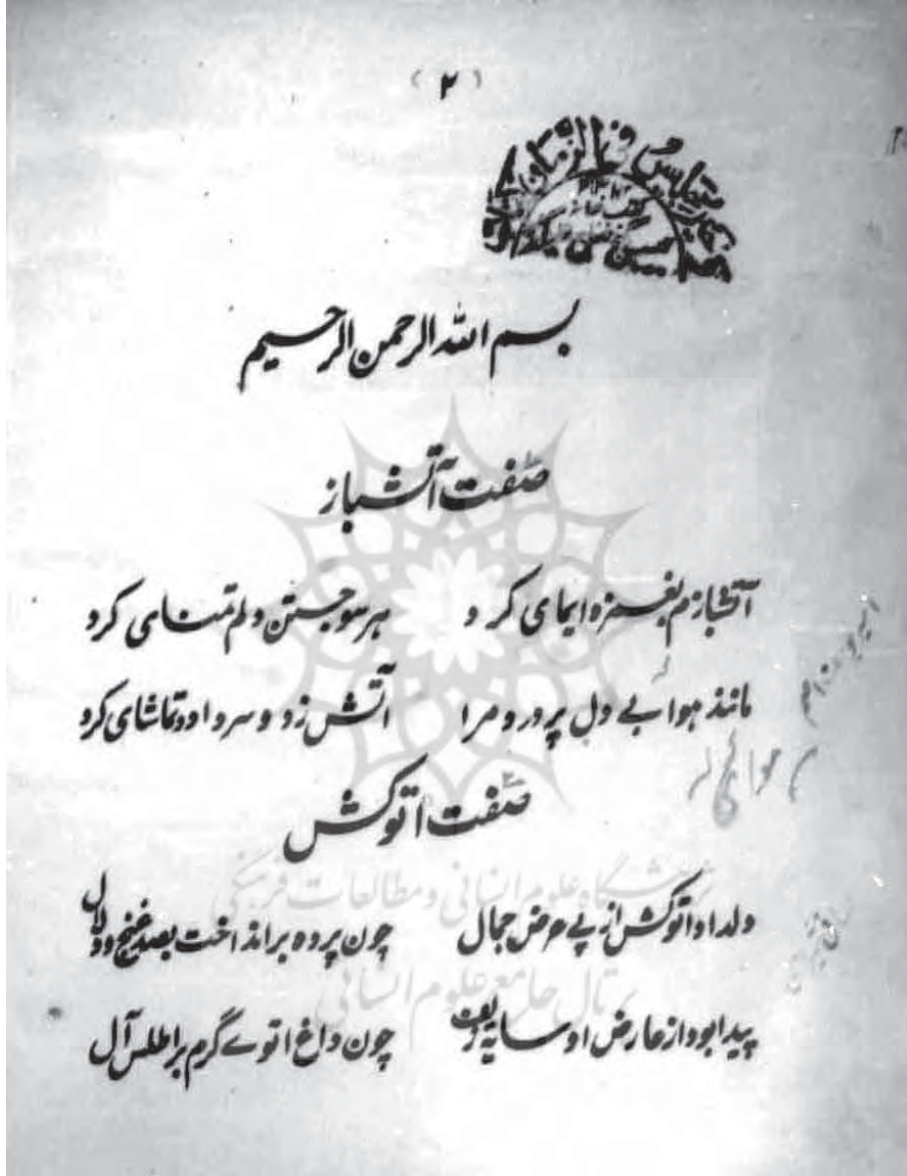 (۲)
بسم الله الرحمن الرحیم
صفت آتشباز
آتشبازم بغمزه ایمای کرد هر سو جستن دلم تمنای کرد
مانند هوا بے دل پر درد مرا آتش زد و سر داد و تماشای کرد
صفت اتوکش
دلدار اتوکش از پے عرض جمال چون پرده برانداخت بصد غنج و دلال
پیدا بود از عارض او سایه زلف چون داغ اتوے گرم بر اطلس آل
پژوهشگاه علوم انسانی و مطالعات فرهنگی
پرتال جامع علوم انسانی